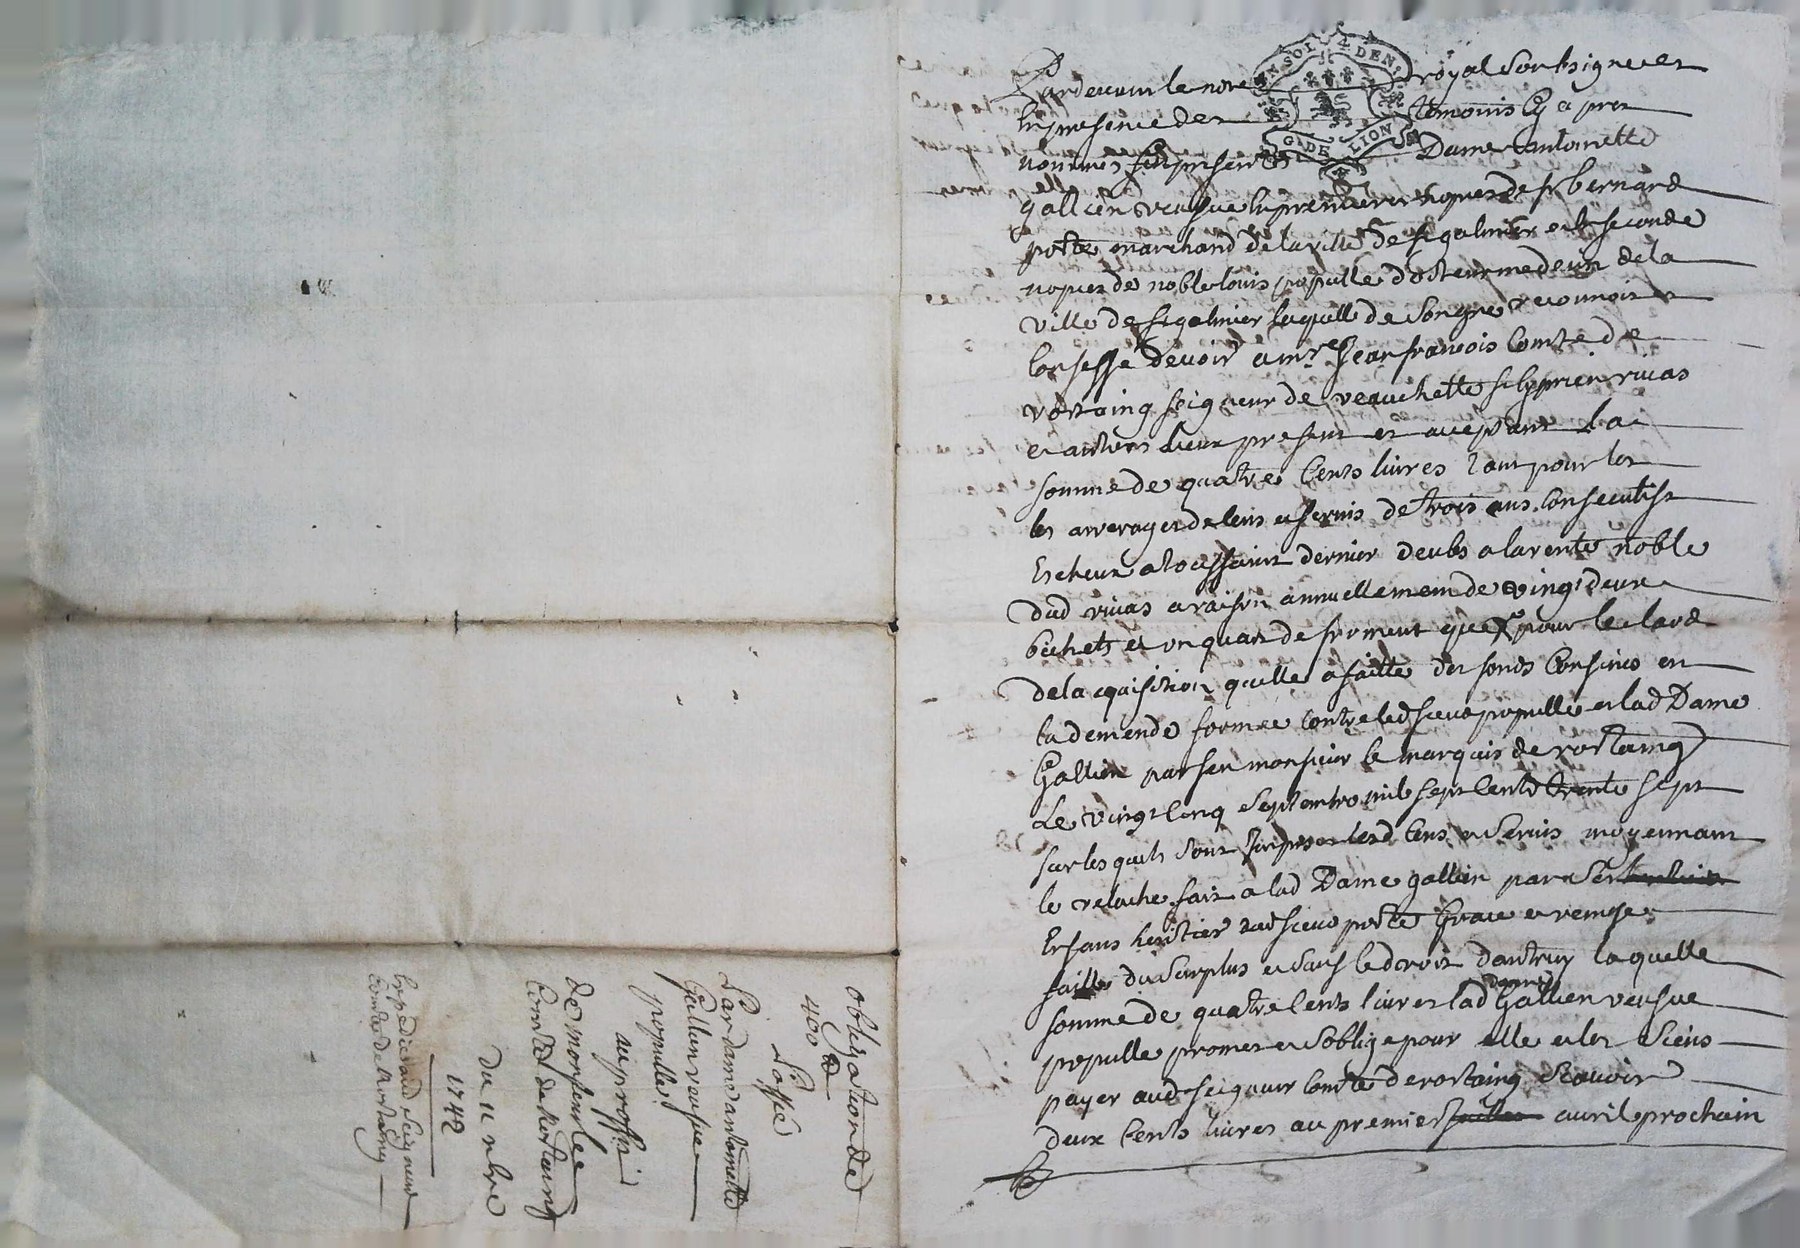 SIX SOLS 4 DEN.
G. DE LION
Pardevant le no.re royal soubsigne et
en presence des temoins cy a pres
nommes fut presente Dame antoinette
gallien veufve en premieres nopces de sr bernard
potte marchand de la ville de st galmier et en seconde
nopces de noble louis populle docteur medecin de la
ville de st galmier laquelle de son gre reconnoit et
confesse devoir a m.re Jean francois Comte de
rostaing seigneur de veauchette st cyprien rivas
et autres lieux present et acceptant la
somme de quatre cents livres tant pour les
les arrerages de cens et servis de trois ans consecutifs
escheux a toussaint dernier deubs a la rente noble
dud rivas a raison annuellement de vingt deux
bichets et un quart de froment que pour le lavd
de la cquisition quelle a faitte des fonds Confines en
la demende formée contre led sieur populle et lad Dame
Gallien par feu monsieur le marquis de rostaing
Le vingt cinq septembre mil sept cents trente sept
sur lesquels sont Imposes lesd Cens et Servis moyennant
le relache fait a lad Dame gallien par ses
Enfans heritier dud sieur potte Grace et remise
faitte du Surplus et sauf le droit dautruy laquelle
somme de quatre cents livres lad dame Gallien veufve
populle promet et soblige pour elle et les Siens
payer aud seigneur Comte de rostaing Scavoir
deux Cents livres au premier avril prochain
obligation de
400 ll
Passée
Par dame antoinette
Gallien veufve
populle
au proffit
de monsieur le
Comte de Rostaing
Du 11 nbre
1742
Expedie aud Seigneur
Comte de Rostaing